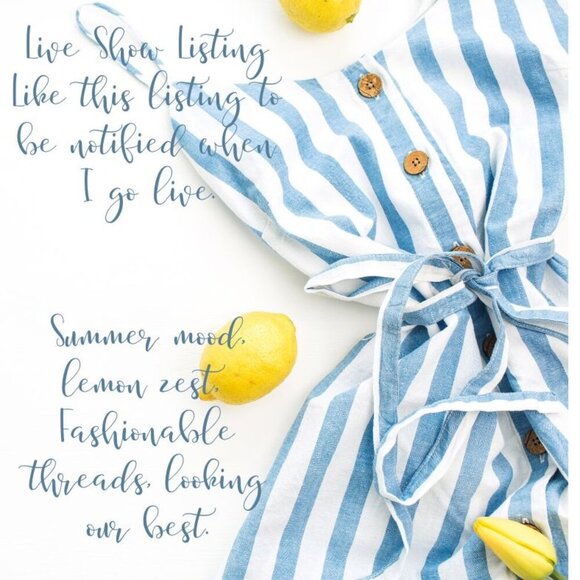 Live Show Listing
Like this listing to
be notified when
I go live.
Summer mood,
lemon zest,
Fashionable
threads, looking
our best.